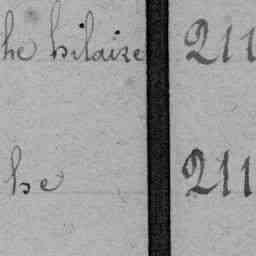 he hilaire 211
he 211